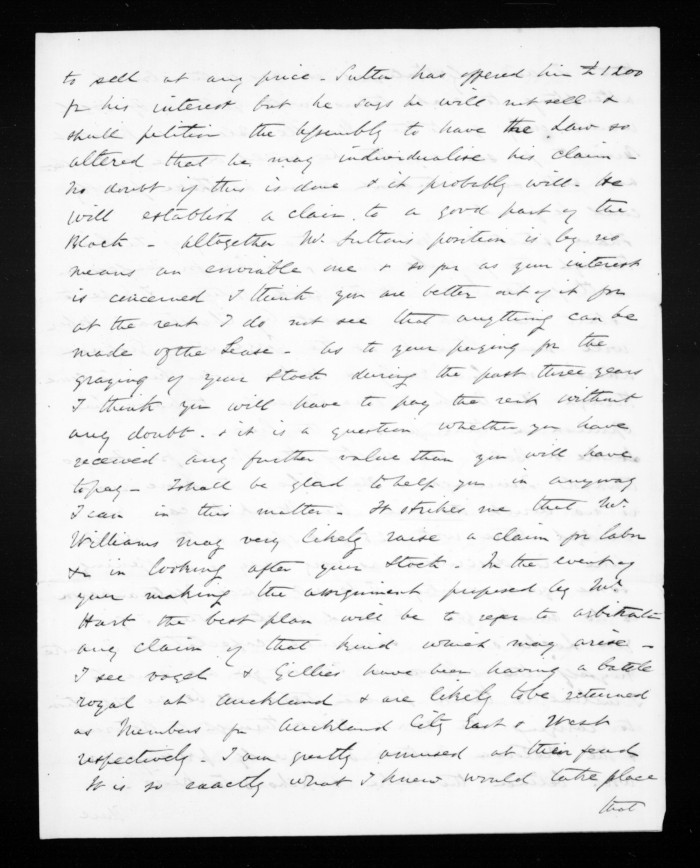 to sell at any price - Sutton has offered him £1200
for his interest but he says he will not sell &
shall petition the Assembly to have the Law so
altered that he may individualise his claim -
No doubt if this is done & it probably will - He
will establish a claim to a good part of the
Block - altogether Mr Sutton's position is by no
means an enviable one & so far as your interest
is concerned I think you are better out of it for
at the rent I do not see that anything can be
made of the Lease - As to your paying for the
grazing of your Stock during the past three years
I think you will have to pay the rent without
any doubt - & it is a question whether you have
received any further value than you will have
to pay - I shall be glad to help you in anyway
I can in this matter - It strikes me that Mr
Williams may very likely raise a claim for labor
&c in looking after your Stock - In the event of
your making the assignment proposed by Mr
Hart the best plan will be to refer to arbitration
any claim of that kind which may arise -
I see Vogel & Gillies have been having a battle
royal at Auckland & are likely to be returned
as Members for Auckland City East & West
respectively - I am greatly amused at their feud
It is so exactly what I knew would take place
that